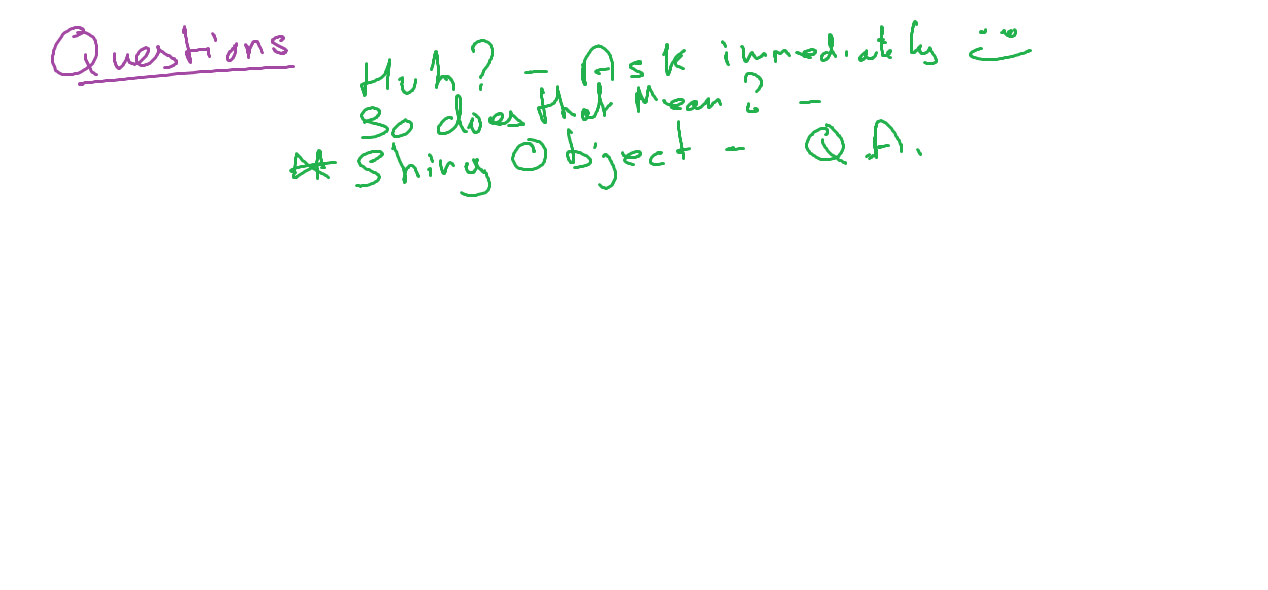 Questions
Huh? - Ask immediately
So does that Mean? -
Shiny Object - QA.